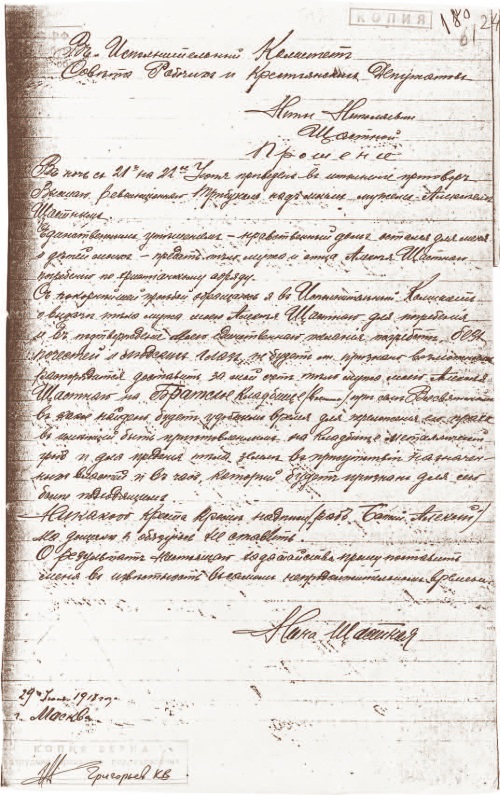 КОПИЯ
180
6/24
Въ Исполнительный Комитетъ
Совѣта Рабочихъ и Крестьянскихъ Депутатовъ
Нины Николаевны
Щастной
Прошеніе
Въ ночь съ 21го на 22ое Іюня приведенъ въ исполненіе приговоръ
надъ моимъ мужемъ Алексѣемъ
Щастнымъ
Единственнымъ утѣшеніемъ - нравственный долгъ остался для меня
и дѣтей моихъ - предать тѣло мужа и отца Алексѣя Щастнаго
погребенію по христіанскому обряду.
Съ покорнѣйшей просьбой обращаюсь я въ Исполнительный Комитетъ
о выдачѣ тѣла мужа моего Алексѣя Щастнаго для погребенія
и въ подтвержденіе моего единственнаго желанія
не будетъ ли признано возможнымъ
распорядиться доставить за мой счетъ тѣло мужа моего Алексѣя
Щастнаго на Братское кладбище при селѣ
въ какое найдено будетъ удобнымъ время для
на кладбище
и для преданія тѣла землѣ въ присутствіи назначен
ныхъ властей и въ часъ, который будетъ признанъ для сего
болѣе подходящимъ
Никакого креста кромѣ надписи /рабъ Божій Алексѣй/
не ставить.
О результатѣ настоящаго ходатайства прошу поставить
меня въ извѣстность въ самомъ непродолжительномъ времени.
Нина Щастная
29го Іюня 1918 года
г. Москва
КОПИЯ ВЕРНА
Григорьев КВ